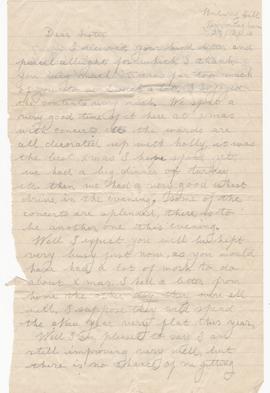 Dear Sister
I received your kind letter and
parcel allright for which I thank
you very much. It was far too much
the contents very much. We spent a
very good time of it here at xmas
with concerts etc the wards are
all decorated up with holly, it was
the best xmas I have spent yet,
we had a big dinner of turkey
etc. then we had a very good whist
drive in the evening. Some of the
concerts are splendid, there is to
be another one this evening.
Well I expect you will be kept
very busy just now, as you would
have had a lot of work to do
about Xmas. I had a letter from
home the other day they were all
well, I suppose they will spend
the New Year very flat this year.
Well I am pleased to say I am
still improving very well, but
there is no chance of me getting